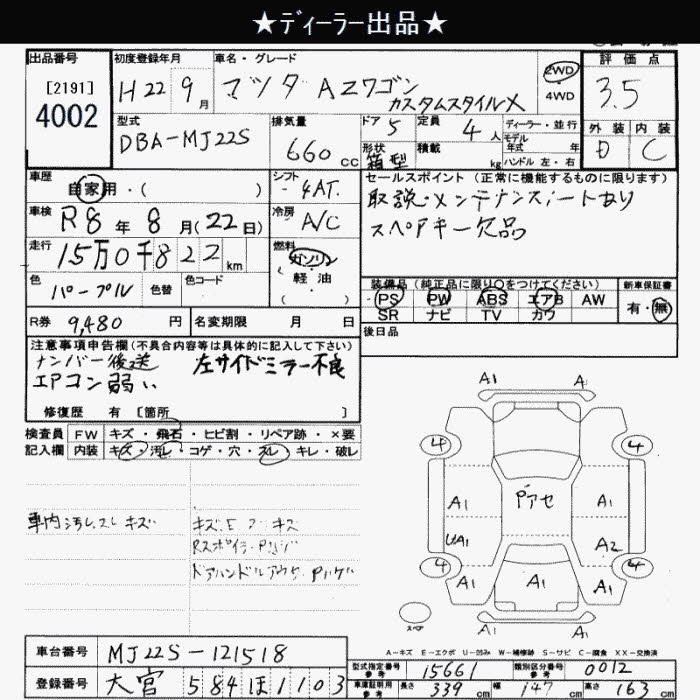 ★ディーラー出品★
出品番号
[2191]
4002
初度登録年月
H22年9月
車名・グレード
マツダ AZワゴン
カスタムスタイルX
2WD
4WD
評価点
3.5
型式
DBA-MJ22S
排気量
660 CC
ドア 5
定員 4 人
形状 箱型
積載 kg
ディーラー・並行
モデル年式 年
ハンドル 左・右
外装 内装
D C
車歴
自家用・( )
シフト
4AT.
車検 R8年8月(22日)
冷房 A/C
走行 15万0千822km
燃料
ガソリン
軽油
( )
色 パープル
色替
色コード
R券 9,480 円
名変期限 月 日
セールスポイント (正常に機能するものに限ります)
取説・メンテナンスノートあり
スペアキー欠品
装備品 (純正品に限り○をつけてください)
PS PW ABS エアB AW
SR ナビ TV カワ
新車保証書
有・無
後日品
注意事項申告欄(不具合内容等は具体的に記入して下さい)
ナンバー後送 左サイドミラー不良
エアコン弱い
修復歴 有 [箇所 ]
検査員 FW キズ・飛石・ヒビ割・リペア跡・×要
記入欄 内装 キズ・汚レ・コゲ・穴・スレ・キレ・破レ
車内汚レスレキズ
キズ.E
Rスポイラ・Pハゲ
Pハゲ
A1 A
4 4
A1 Pアセ A1
A1 A2
4 4
A1 A1 A1
A1
スペア
A-キズ E-エクボ U-凹み W-補修跡 S-サビ C-腐食 XX-交換済
車台番号 MJ22S-121518
登録番号 大宮 584 ほ 1103
型式指定番号 参考 15661
類別区分番号 参考 0012
車庫証明用 参考 長さ 339 cm 幅 147 cm 高さ 163 cm